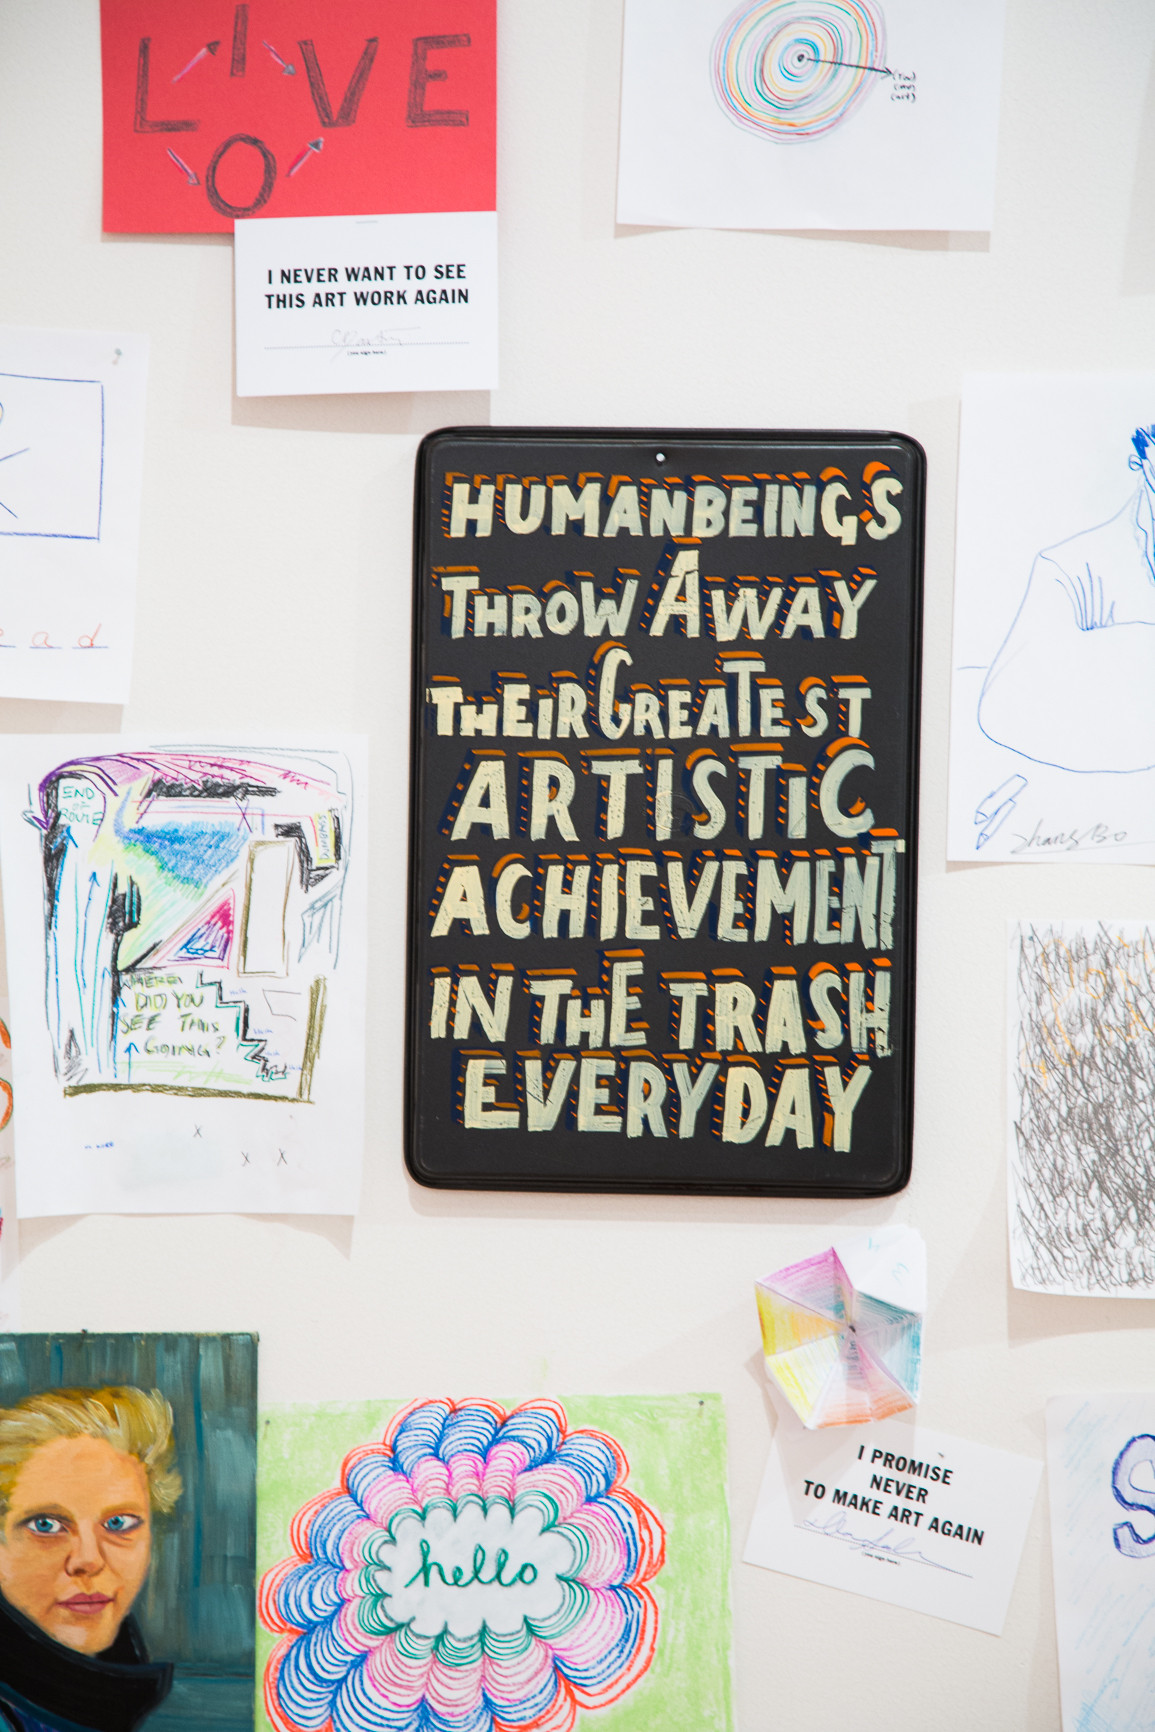 L I V E
O
I NEVER WANT TO SEE
THIS ART WORK AGAIN
(you sign here)
HUMANBEINGS
THROW AWAY
THEIR GREATEST
ARTISTIC
ACHIEVEMENT
IN THE TRASH
EVERYDAY
e a d
Zhang Bo
END
OF
ROUTE
WHERE
DID YOU
SEE THIS
GOING?
X
X X
hello
I PROMISE
NEVER
TO MAKE ART AGAIN
(you sign here)
S